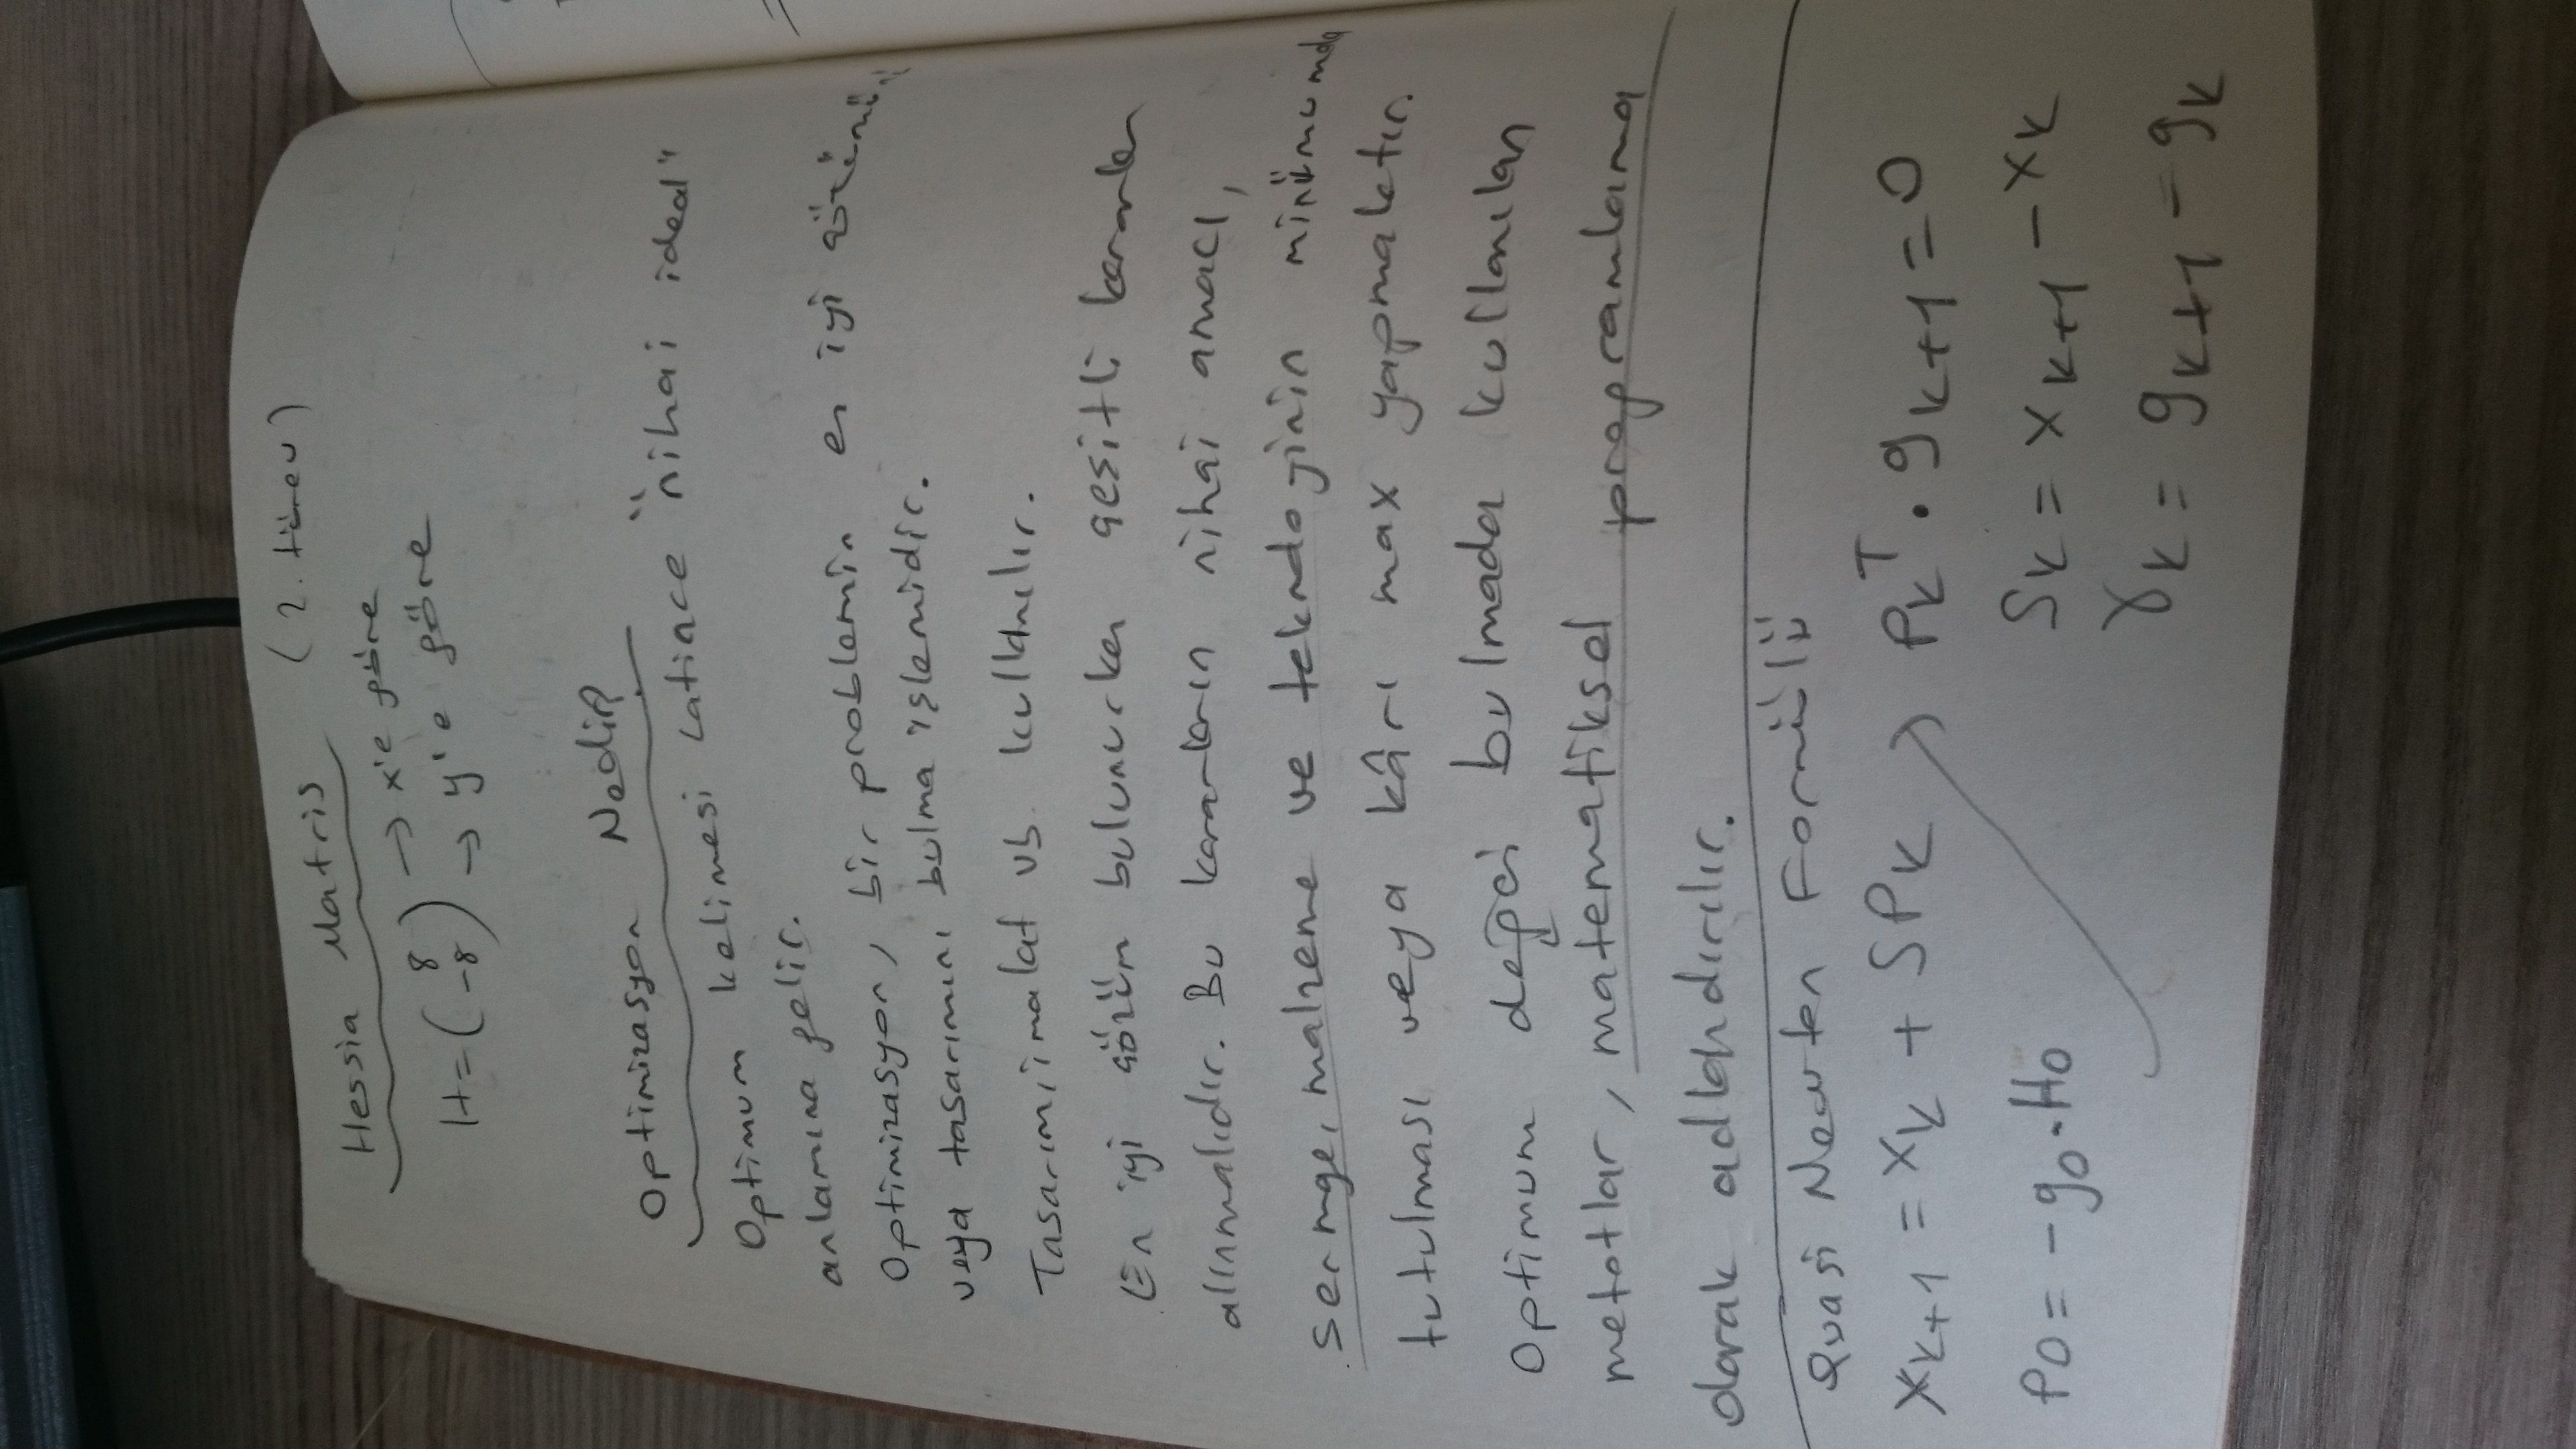 Hessia Matris (2. türev)
H = ( 8 ) → x'e göre
( -8 ) → y'e göre
Optimizasyon Nedir?
Optimum kelimesi Latince "nihai ideal"
anlamına gelir.
Optimizasyon, bir problemin en iyi çözümünü
veya tasarımını bulma işlemidir.
Tasarım, imalat vb. kullanılır.
En iyi çözüm bulunurken çeşitli kararlar
alınmalıdır. Bu kararların nihai amacı,
malzeme ve teknolojinin minimumda
tutulması veya kârı max yapmaktır.
Optimum değeri bulmada kullanılan
metotlar, matematiksel programlama
olarak adlandırılır.
Quasi Newton Formülü
x_{k+1} = x_k + SP_k → P_k^T . g_{k+1} = 0
P0 = -g_0 . H_0
S_k = x_{k+1} - x_k
γ_k = g_{k+1} - g_k